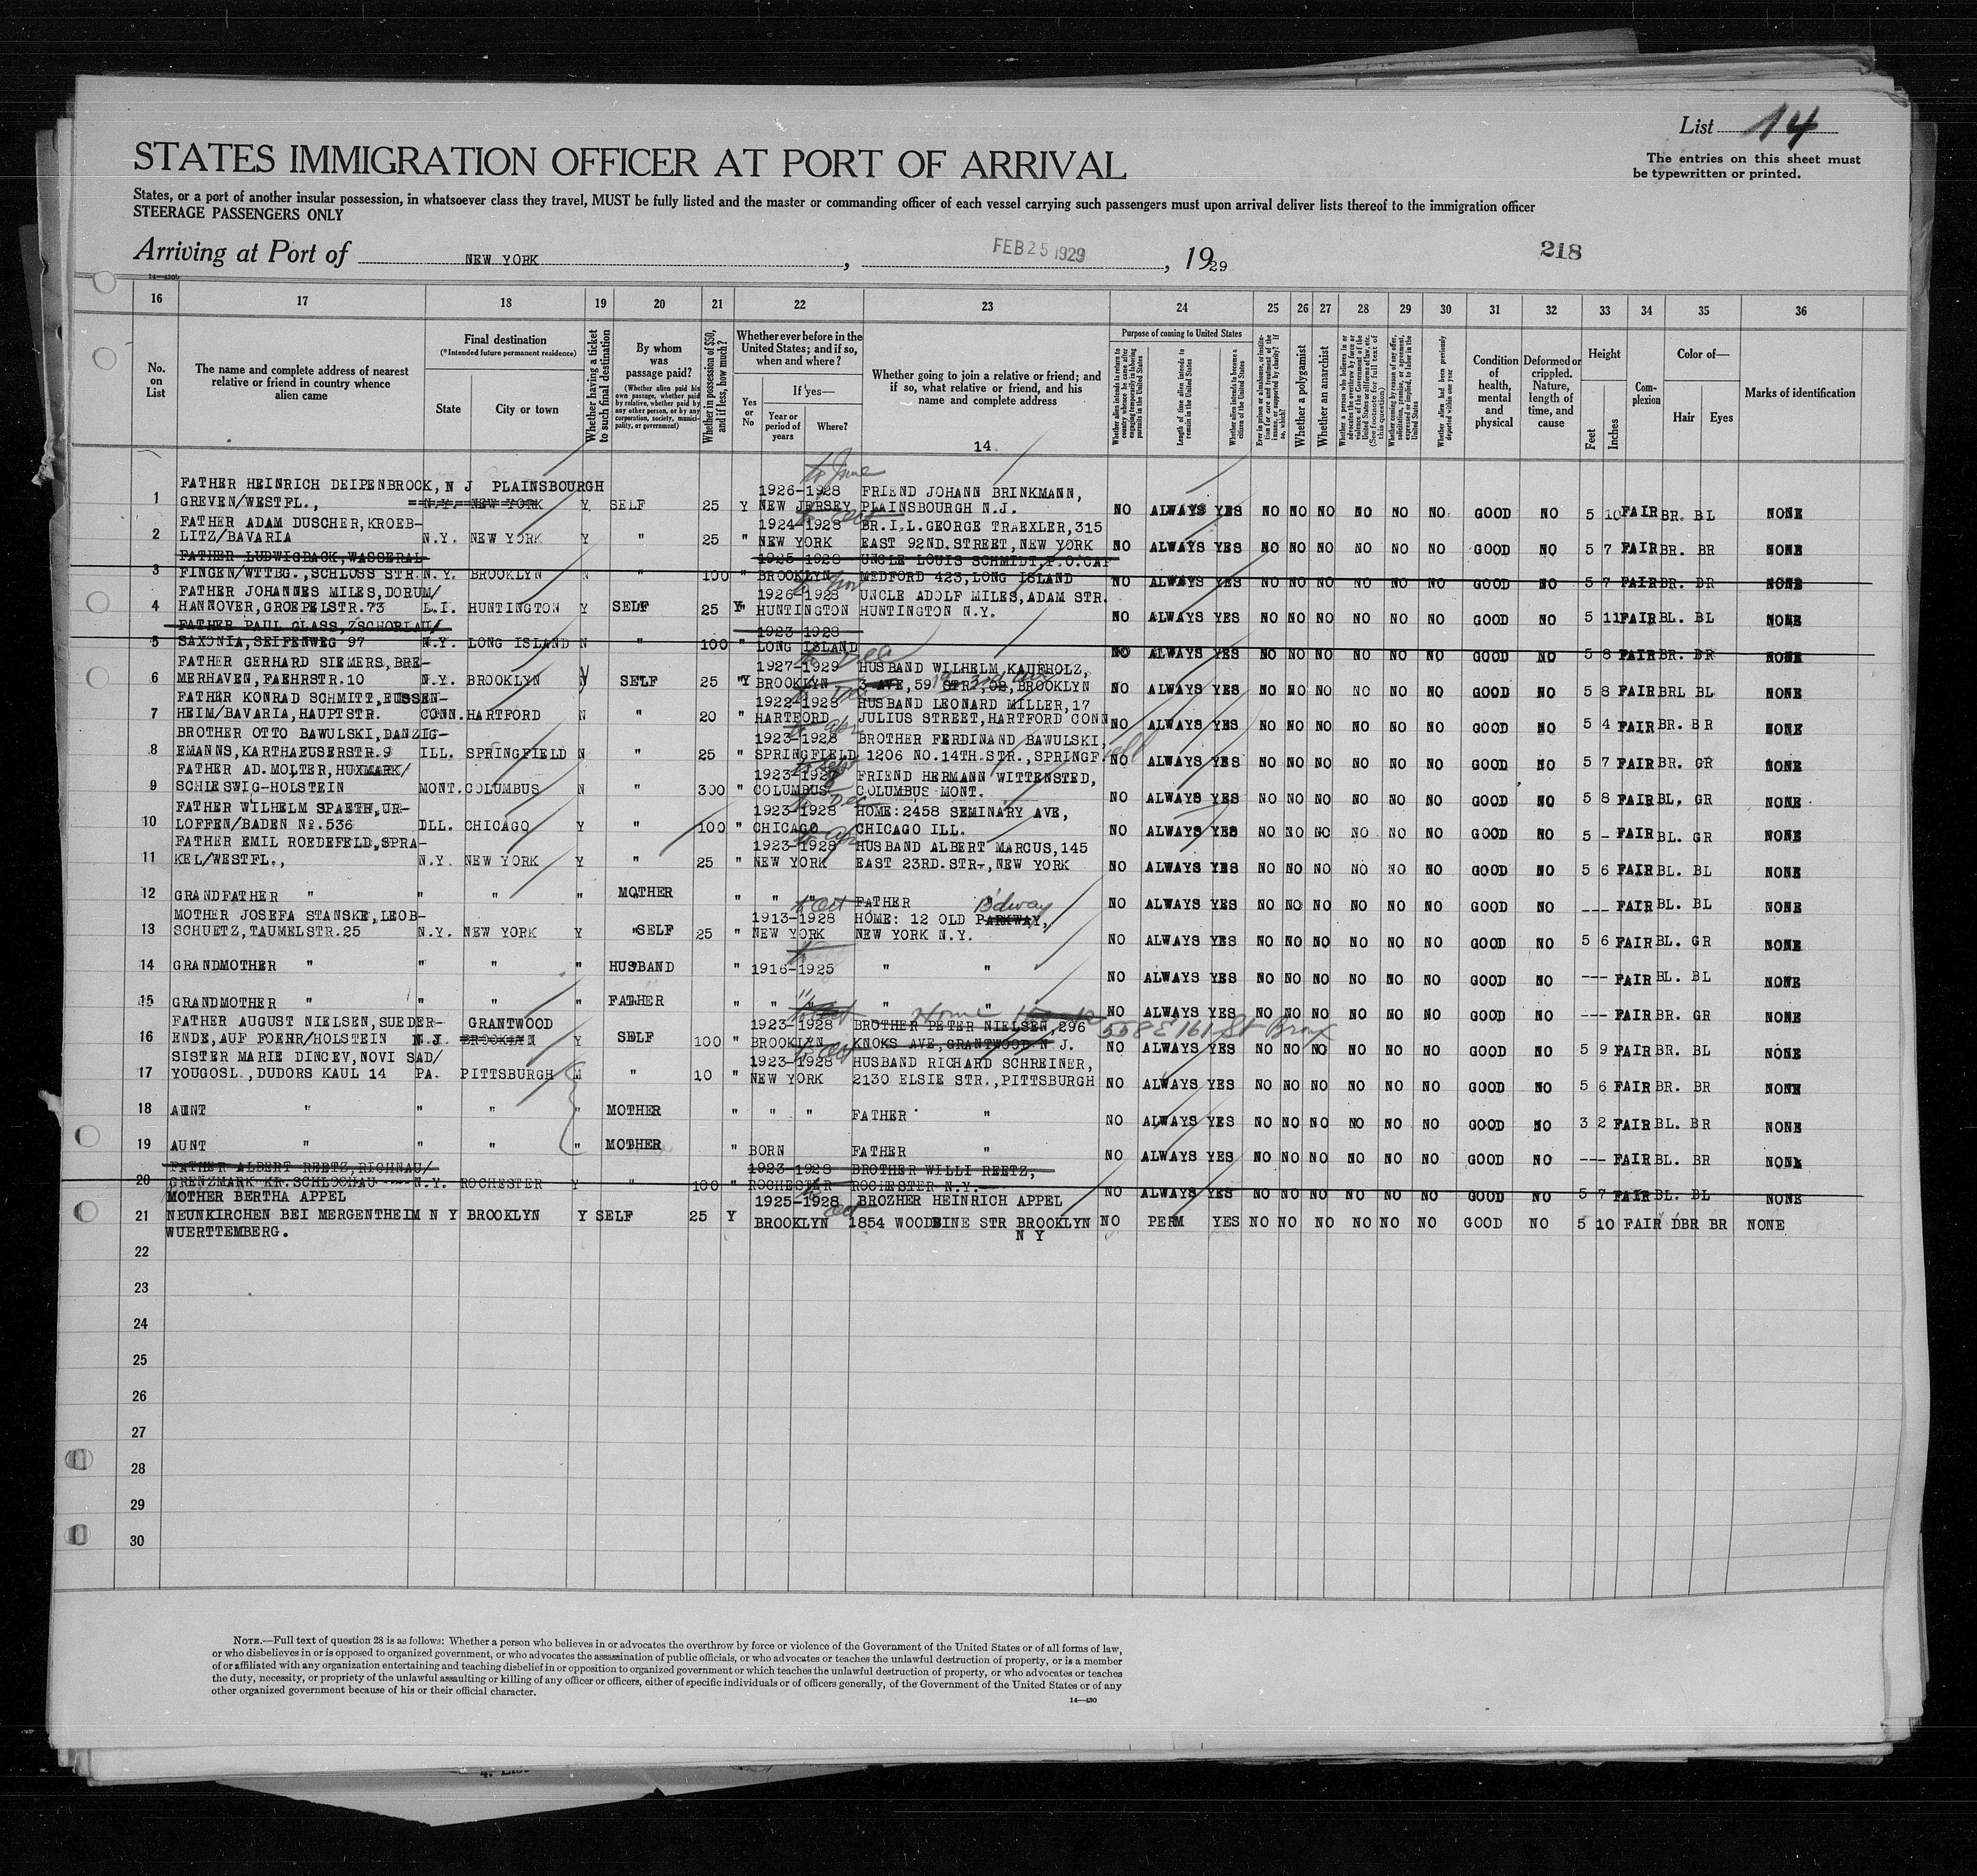 List 14
The entries on this sheet must
be typewritten or printed.
STATES IMMIGRATION OFFICER AT PORT OF ARRIVAL
States, or a port of another insular possession, in whatsoever class they travel, MUST be fully listed and the master or commanding officer of each vessel carrying such passengers must upon arrival deliver lists thereof to the immigration officer
STEERAGE PASSENGERS ONLY
Arriving at Port of NEW YORK, FEB 25 1929, 1929 218
14—430b
16 17 18 19 20 21 22 23 24 25 26 27 28 29 30 31 32 33 34 35 36
No. on List
The name and complete address of nearest relative or friend in country whence alien came
Final destination
(*Intended future permanent residence)
State
City or town
Whether having a ticket to such final destination
By whom was passage paid?
(Whether alien paid his own passage, whether paid by relative, whether paid by any other person, or by any corporation, society, municipality, or government)
Whether in possession of $50, and if less, how much?
Whether ever before in the United States; and if so, when and where?
Yes or No
If yes—
Year or period of years
Where?
Whether going to join a relative or friend; and if so, what relative or friend, and his name and complete address
14.
Purpose of coming to United States
Whether alien intends to return to country whence he came after engaging temporarily in laboring pursuits in the United States
Length of time alien intends to remain in the United States
Whether alien intends to become a citizen of the United States
Ever in prison or almshouse, or institution for care and treatment of the insane, or supported by charity? If so, which?
Whether a polygamist
Whether an anarchist
Whether a person who believes in or advocates the overthrow by force or violence of the Government of the United States or all forms of law, etc. (See footnote for full text of this question)
Whether coming by reason of any offer, solicitation, promise, or agreement, expressed or implied, to labor in the United States
Whether alien had been previously deported within one year
Condition of health, mental and physical
Deformed or crippled. Nature, length of time, and cause
Height
Feet
Inches
Complexion
Color of—
Hair
Eyes
Marks of identification
to June
FATHER HEINRICH DEIPENBROCK, N J PLAINSBOURGH 1926-1928 FRIEND JOHANN BRINKMANN,
1 GREVEN/WESTFL., N.Y. NEW YORK Y SELF 25 Y NEW JERSEY PLAINSBOURGH N.J. NO ALWAYS YES NO NO NO NO NO NO GOOD NO 5 10 FAIR BR. BL NONE
FATHER ADAM DUSCHER, KROEB- 1924-1928 BR.I.L.GEORGE TRAEXLER, 315
2 LITZ/BAVARIA N.Y. NEW YORK Y " 25 " NEW YORK EAST 92ND.STREET, NEW YORK NO ALWAYS YES NO NO NO NO NO NO GOOD NO 5 7 FAIR BR. BR NONE
FATHER LUDWIG BACK, WASSERAL- 1925-1928 UNCLE LOUIS SCHMIDT, P.O.CAF
3 FINGEN/WTTBG., SCHLOSS STR. N.Y. BROOKLYN N " 100 " BROOKLYN MEDFORD 423, LONG ISLAND NO ALWAYS YES NO NO NO NO NO NO GOOD NO 5 7 FAIR BR. BR NONE
FATHER JOHANNES MILES, DORUM/ 1926-1928 UNCLE ADOLF MILES, ADAM STR.
4 HANNOVER, GROEPELSTR.73 L.I. HUNTINGTON Y SELF 25 Y HUNTINGTON HUNTINGTON N.Y. NO ALWAYS YES NO NO NO NO NO NO GOOD NO 5 11 FAIR BL. BL NONE
FATHER PAUL GLASS, ZSCHORLAU/ 1923-1928
5 SAXONIA, SEIFENWEG 97 N.Y. LONG ISLAND N " 100 " LONG ISLAND NO ALWAYS YES NO NO NO NO NO NO GOOD NO 5 8 FAIR BR. BR NONE
to Dec
FATHER GERHARD SIEMERS, BRE- 1927-1929 HUSBAND WILHELM KAUFHOLZ,
6 MERHAVEN, FAEHRSTR.10 N.Y. BROOKLYN Y SELF 25 "Y BROOKLYN 3 AVE, 59 STR., 02, BROOKLYN NO ALWAYS YES NO NO NO NO NO NO GOOD NO 5 8 FAIR BRL BL NONE
FATHER KONRAD SCHMITT, EUSSEN- 1922-1928 HUSBAND LEONARD MILLER, 17
7 HEIM/BAVARIA, HAUPTSTR. CONN. HARTFORD N " 20 " HARTFORD JULIUS STREET, HARTFORD CONN NO ALWAYS YES NO NO NO NO NO NO GOOD NO 5 4 FAIR BR. BR NONE
to Apr
BROTHER OTTO BAWULSKI, DANZIG- 1923-1928 BROTHER FERDINAND BAWULSKI,
8 EMANNS, KARTHAEUSERSTR.9 ILL. SPRINGFIELD N " 25 " SPRINGFIELD 1206 NO.14TH.STR., SPRINGF. ield NO ALWAYS YES NO NO NO NO NO NO GOOD NO 5 7 FAIR BR. GR NONE
to Sept
FATHER AD.MOLTER, HUXMARK/ 1923-1927 FRIEND HERMANN WITTENSTED,
9 SCHIESWIG-HOLSTEIN MONT. COLUMBUS N " 300 " COLUMBUS COLUMBUS MONT. NO ALWAYS YES NO NO NO NO NO NO GOOD NO 5 8 FAIR BL, GR NONE
to Dec
FATHER WILHELM SPAETH, UR- 1923-1928 HOME: 2458 SEMINARY AVE,
10 LOFFEN/BADEN No.536 DLL. CHICAGO Y " 100 " CHICAGO CHICAGO ILL. NO ALWAYS YES NO NO NO NO NO NO GOOD NO 5 - FAIR BL. GR NONE
to Apr
FATHER EMIL ROEDEFELD, SPRA- 1923-1928 HUSBAND ALBERT MARCUS, 145
11 KEL/WESTFL., N.Y. NEW YORK Y " 25 " NEW YORK EAST 23RD.STR., NEW YORK NO ALWAYS YES NO NO NO NO NO NO GOOD NO 5 6 FAIR BL. BL NONE
12 GRANDFATHER " " " " MOTHER " " " FATHER " NO ALWAYS YES NO NO NO NO NO NO GOOD NO --- FAIR BL. BL NONE
to Oct Bdway
MOTHER JOSEFA STANSKE, LEOB- 1913-1928 HOME: 12 OLD PARKWAY,
13 SCHUETZ, TAUMELSTR.25 N.Y. NEW YORK Y "SELF 25 " NEW YORK NEW YORK N.Y. NO ALWAYS YES NO NO NO NO NO NO GOOD NO 5 6 FAIR BL. GR NONE
14 GRANDMOTHER " " " " HUSBAND " 1916-1925 " " NO ALWAYS YES NO NO NO NO NO NO GOOD NO --- FAIR BL. BL NONE
15 GRANDMOTHER " " " " FATHER " " " " " NO ALWAYS YES NO NO NO NO NO NO GOOD NO --- FAIR BR. GR NONE
Home 558 E 161 St Bronx
FATHER AUGUST NIELSEN, SUEDER- GRANTWOOD 1923-1928 BROTHER PETER NIELSEN, 296
16 ENDE, AUF FOEHR/HOLSTEIN N.J. BROOKLYN Y SELF 100 " BROOKLYN KNOKS AVE, GRANTWOOD N J. NO ALWAYS YES NO NO NO NO NO NO GOOD NO 5 9 FAIR BR. BL NONE
to Oct
SISTER MARIE DINCEV, NOVI SAD/ 1923-1928 HUSBAND RICHARD SCHREINER,
17 YOUGOSL., DUDORS KAUL 14 PA. PITTSBURGH M " 10 " NEW YORK 2130 ELSIE STR., PITTSBURGH NO ALWAYS YES NO NO NO NO NO NO GOOD NO 5 6 FAIR BR. BR NONE
18 AUNT " " " " MOTHER " " " FATHER " NO ALWAYS YES NO NO NO NO NO NO GOOD NO 3 2 FAIR BL. BR NONE
19 AUNT " " " " MOTHER " BORN FATHER " NO ALWAYS YES NO NO NO NO NO NO GOOD NO --- FAIR BL. BR NONE
FATHER ALBERT REETZ, RICHNAU/ 1923-1928 BROTHER WILLI REETZ,
20 GRENZMARK KR.SCHLOCHAU N.Y. ROCHESTER Y " 100 " ROCHESTER ROCHESTER N.Y. NO ALWAYS YES NO NO NO NO NO NO GOOD NO 5 7 FAIR BL. BL NONE
MOTHER BERTHA APPEL 1925-1928 BROZHER HEINRICH APPEL
Oct
21 NEUNKIRCHEN BEI MERGENTHEIM N Y BROOKLYN Y SELF 25 Y BROOKLYN 1854 WOODBINE STR BROOKLYN NO PERM YES NO NO NO NO NO NO GOOD NO 5 10 FAIR DBR BR NONE
WUERTTEMBERG. N Y
22
23
24
25
26
27
28
29
30
NOTE.—Full text of question 28 is as follows: Whether a person who believes in or advocates the overthrow by force or violence of the Government of the United States or of all forms of law,
or who disbelieves in or is opposed to organized government, or who advocates the assassination of public officials, or who advocates or teaches the unlawful destruction of property, or is a member
of or affiliated with any organization entertaining and teaching disbelief in or opposition to organized government or which teaches the unlawful destruction of property, or who advocates or teaches
the duty, necessity, or propriety of the unlawful assaulting or killing of any officer or officers, either of specific individuals or of officers generally, of the Government of the United States or of any
other organized government because of his or their official character.
14—430